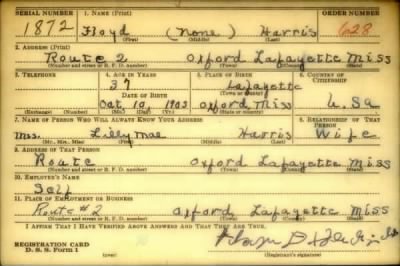 SERIAL NUMBER 1. NAME (Print) ORDER NUMBER
1872 Floyd (none) Harris 628
2. ADDRESS (Print)
Route 2 Oxford Lafayette Miss
(Number and street or R. F. D. number) (Town) (County) (State)
3. TELEPHONE 4. AGE IN YEARS 5. PLACE OF BIRTH 6. COUNTRY OF CITIZENSHIP
37 Lafayette
DATE OF BIRTH (Town or county)
Oct. 10, 1903 Oxford Miss U.Sa
(Exchange) (Number) (Mo.) (Day) (Yr.) (State or country)
7. NAME OF PERSON WHO WILL ALWAYS KNOW YOUR ADDRESS 8. RELATIONSHIP OF THAT PERSON
Mrs. Lilly Mae Harris Wife
(Mr., Mrs., Miss) (First) (Middle) (Last)
9. ADDRESS OF THAT PERSON
Route Oxford Lafayette Miss
(Number and street or R. F. D. number) (Town) (County) (State)
10. EMPLOYER'S NAME
Self
11. PLACE OF EMPLOYMENT OR BUSINESS
Route #2 Oxford Lafayette Miss
(Number and street or R. F. D. number) (Town) (County) (State)
I AFFIRM THAT I HAVE VERIFIED ABOVE ANSWERS AND THAT THEY ARE TRUE.
REGISTRATION CARD
D. S. S. Form 1 (Registrant's signature)